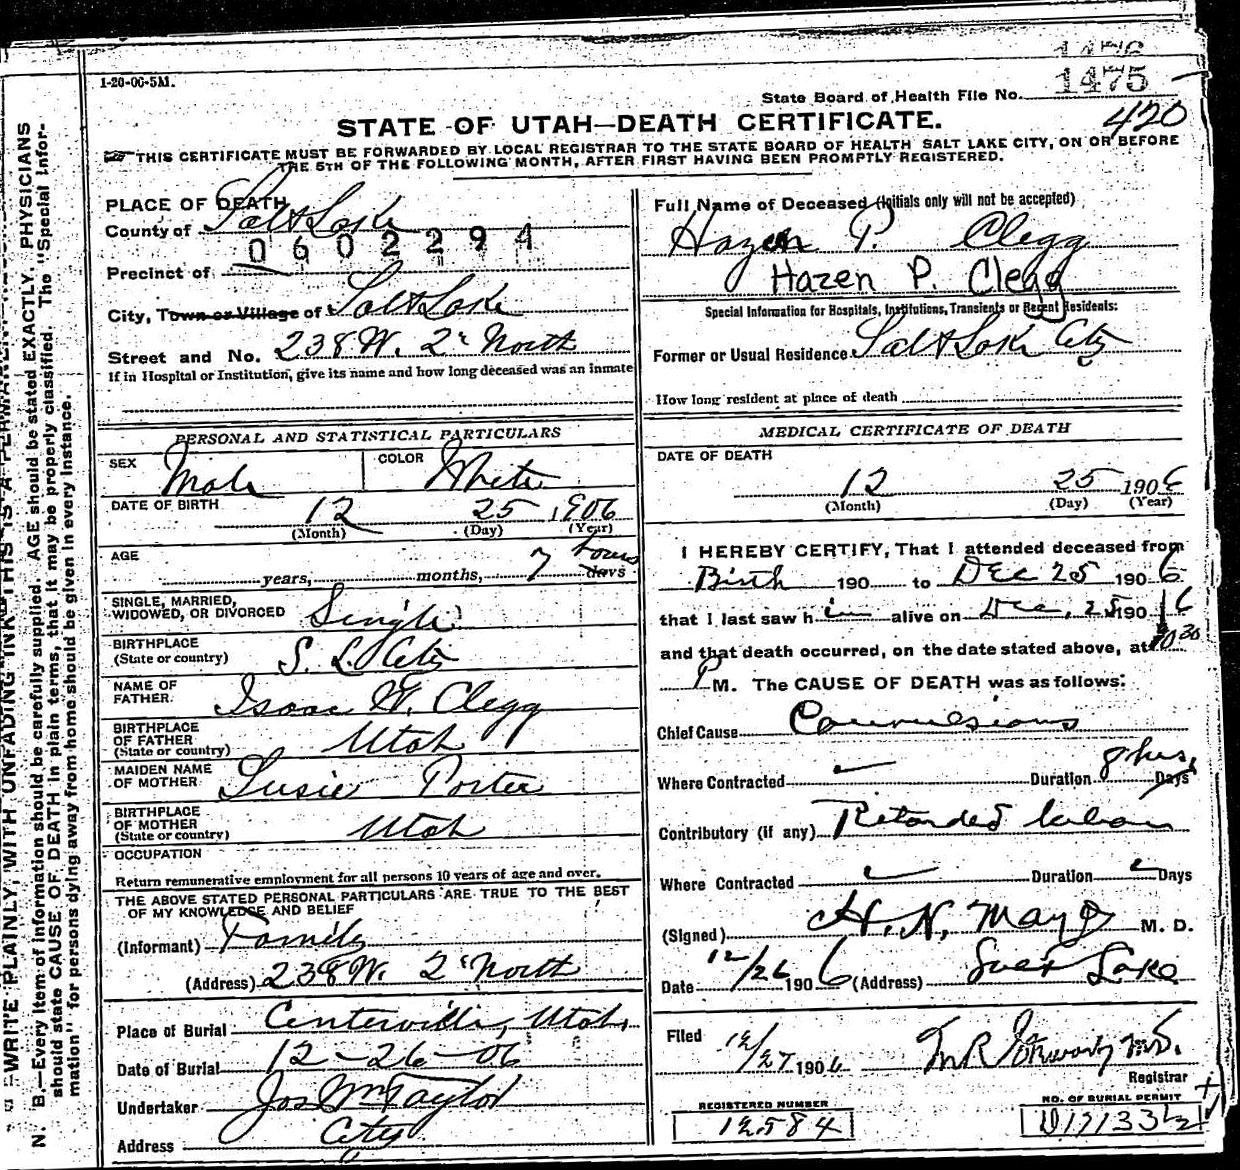 1476
1475
1-20-06-5M.
State Board of Health File No.
420
STATE OF UTAH—DEATH CERTIFICATE.
THIS CERTIFICATE MUST BE FORWARDED BY LOCAL REGISTRAR TO THE STATE BOARD OF HEALTH SALT LAKE CITY, ON OR BEFORE
THE 5TH OF THE FOLLOWING MONTH, AFTER FIRST HAVING BEEN PROMPTLY REGISTERED.
PLACE OF DEATH
County of Salt Lake
0602294
Precinct of
City, Town or Village of Salt Lake
Street and No. 238 W. 2d North
If in Hospital or Institution, give its name and how long deceased was an inmate
Full Name of Deceased (Initials only will not be accepted)
Hazen P. Clegg
Hazen P. Clegg
Special Information for Hospitals, Institutions, Transients or Recent Residents:
Former or Usual Residence Salt Lake City
How long resident at place of death
PERSONAL AND STATISTICAL PARTICULARS
SEX Male COLOR White
DATE OF BIRTH 12 25 1906
(Month) (Day) (Year)
AGE years, months, 7 hours days
SINGLE, MARRIED,
WIDOWED, OR DIVORCED Single
BIRTHPLACE
(State or country) S. L. City
NAME OF
FATHER Isaac W. Clegg
BIRTHPLACE
OF FATHER
(State or country) Utah
MAIDEN NAME
OF MOTHER Susie Porter
BIRTHPLACE
OF MOTHER
(State or country) Utah
OCCUPATION
Return remunerative employment for all persons 10 years of age and over.
THE ABOVE STATED PERSONAL PARTICULARS ARE TRUE TO THE BEST
OF MY KNOWLEDGE AND BELIEF
(Informant) Family
(Address) 238 W. 2d North
Place of Burial Centerville, Utah,
Date of Burial 12-26-06
Undertaker Jos Wm Taylor
Address City
MEDICAL CERTIFICATE OF DEATH
DATE OF DEATH
12 25 1906
(Month) (Day) (Year)
I HEREBY CERTIFY, That I attended deceased from
Birth 190 to Dec 25 1906
that I last saw him alive on Dec, 25 1906
and that death occurred, on the date stated above, at 10 30
P M. The CAUSE OF DEATH was as follows:
Chief Cause Convulsions
Where Contracted Duration 8 hrs, Days
Contributory (if any) Retarded labor
Where Contracted Duration Days
(Signed) H. N. Mayo M. D.
Date 12/26 1906 (Address) Salt Lake
Filed 12/27 1906 M. D.
Registrar
REGISTERED NUMBER
12584
NO. OF BURIAL PERMIT
N. B.—Every item of information should be carefully supplied. AGE should be stated EXACTLY. PHYSICIANS
should state CAUSE OF DEATH in plain terms, that it may be properly classified. The "Special Infor-
mation" for persons dying away from home should be given in every instance.
WRITE PLAINLY, WITH UNFADING INK—THIS IS A PERMANENT